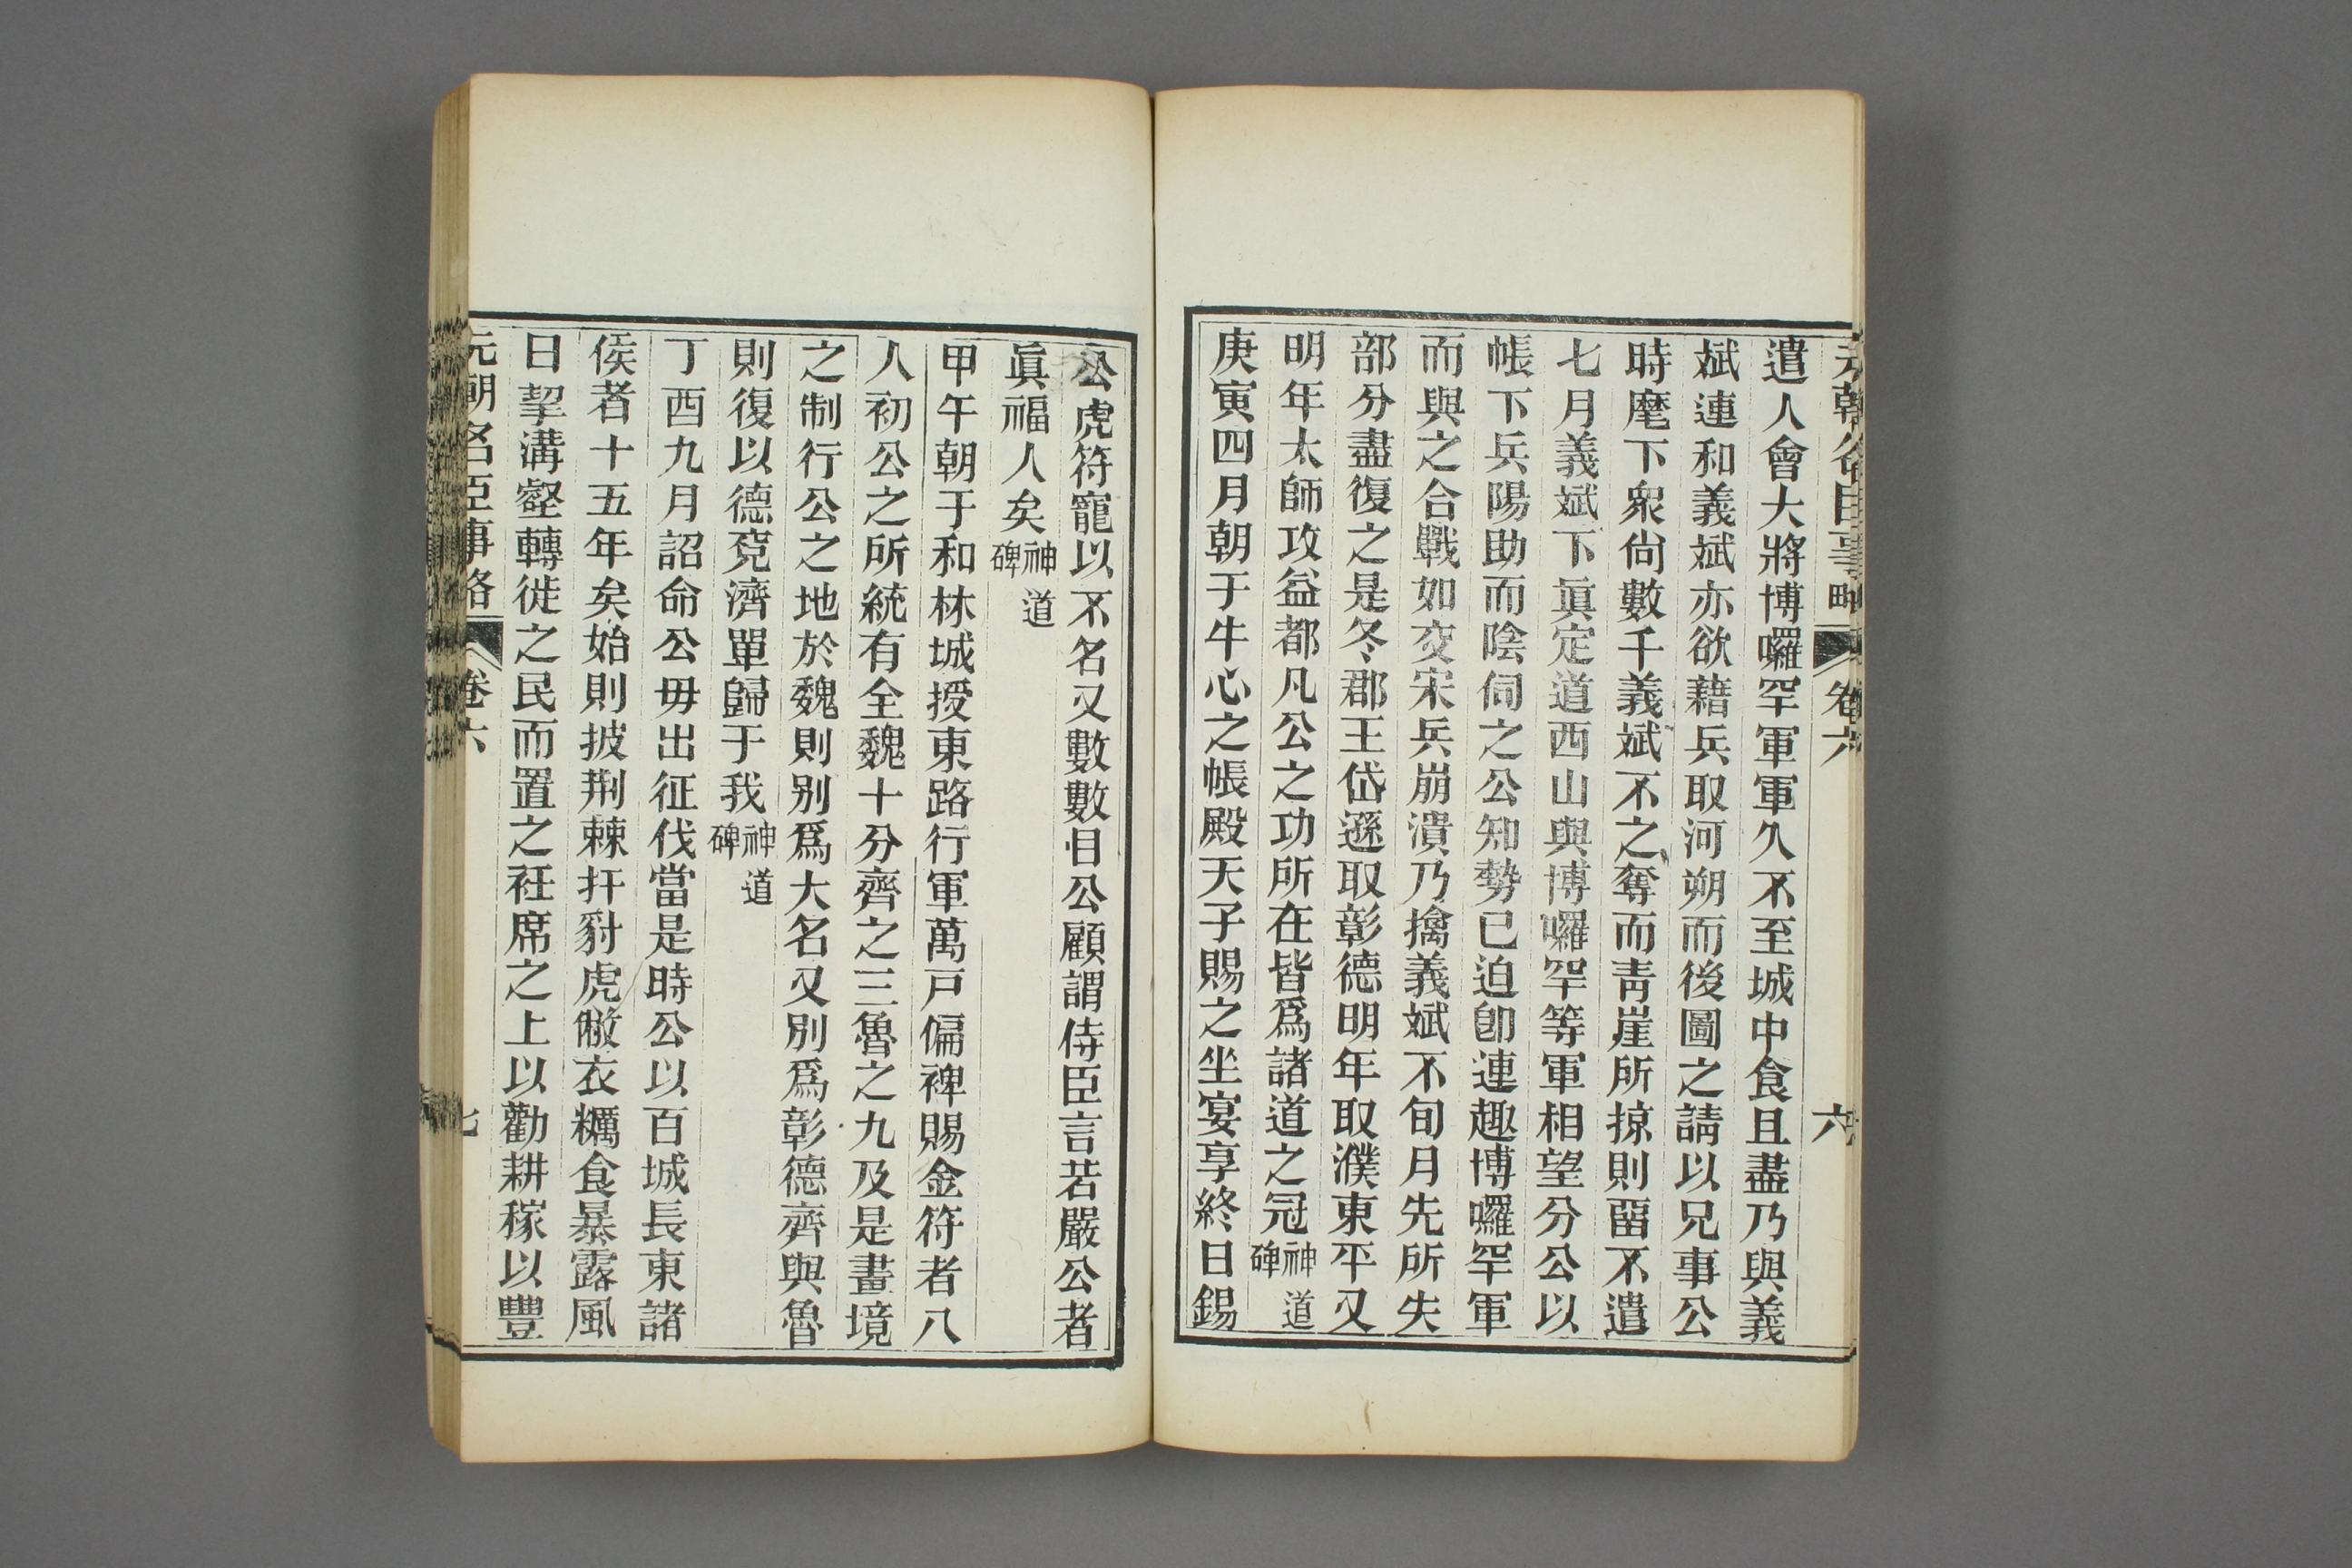 元朝名臣事略 卷六 六
遣人會大將博囉罕軍軍久不至城中食且盡乃與義
斌連和義斌亦欲藉兵取河朔而後圖之請以兄事公
時麾下衆尙數千義斌不之奪而靑崖所掠則留不遣
七月義斌下眞定道西山與博囉罕等軍相望分公以
帳下兵陽助而陰伺之公知勢已迫卽連趣博囉罕軍
而與之合戰如交宋兵崩潰乃擒義斌不旬月先所失
部分盡復之是冬郡王岱遜取彰德明年取濮東平又
明年太師攻益都凡公之功所在皆爲諸道之冠神道碑
庚寅四月朝于牛心之帳殿天子賜之坐宴享終日錫
公虎符寵以不名又數數目公顧謂侍臣言若嚴公者
眞福人矣神道碑
甲午朝于和林城授東路行軍萬戸偏裨賜金符者八
人初公之所統有全魏十分齊之三魯之九及是畫境
之制行公之地於魏則别爲大名又别爲彰德齊與魯
則復以德兗濟單歸于我神道碑
丁酉九月詔命公毋出征伐當是時公以百城長東諸
侯者十五年矣始則披荆棘扞豺虎敝衣糲食暴露風
日挈溝壑轉徙之民而置之衽席之上以勸耕稼以豐
元朝名臣事略 卷六 七